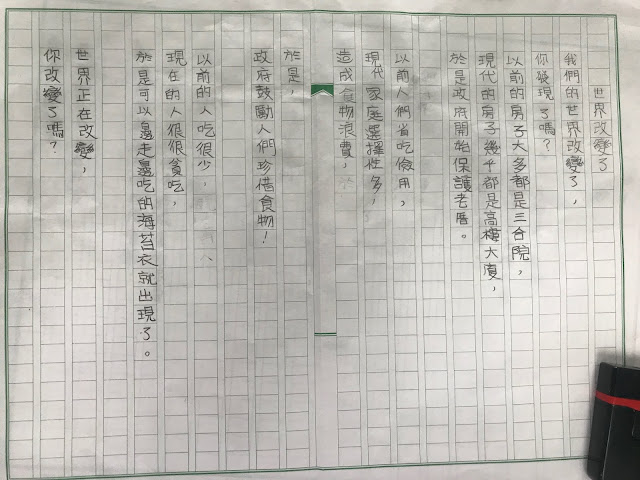 世界改變了
我們的世界改變了，
你發現了嗎？
以前的房子大多都是三合院，
現代的房子幾乎都是高樓大廈，
於是政府開始保護老厝。
以前人們省吃儉用，
現代家庭選擇性多，
造成食物浪費，
於是，
政府鼓勵人們珍惜食物！
以前的人吃很少，
現在的人很很貪吃，
於是可以邊走邊吃的海苔衣就出現了。
世界正在改變，
你改變了嗎？